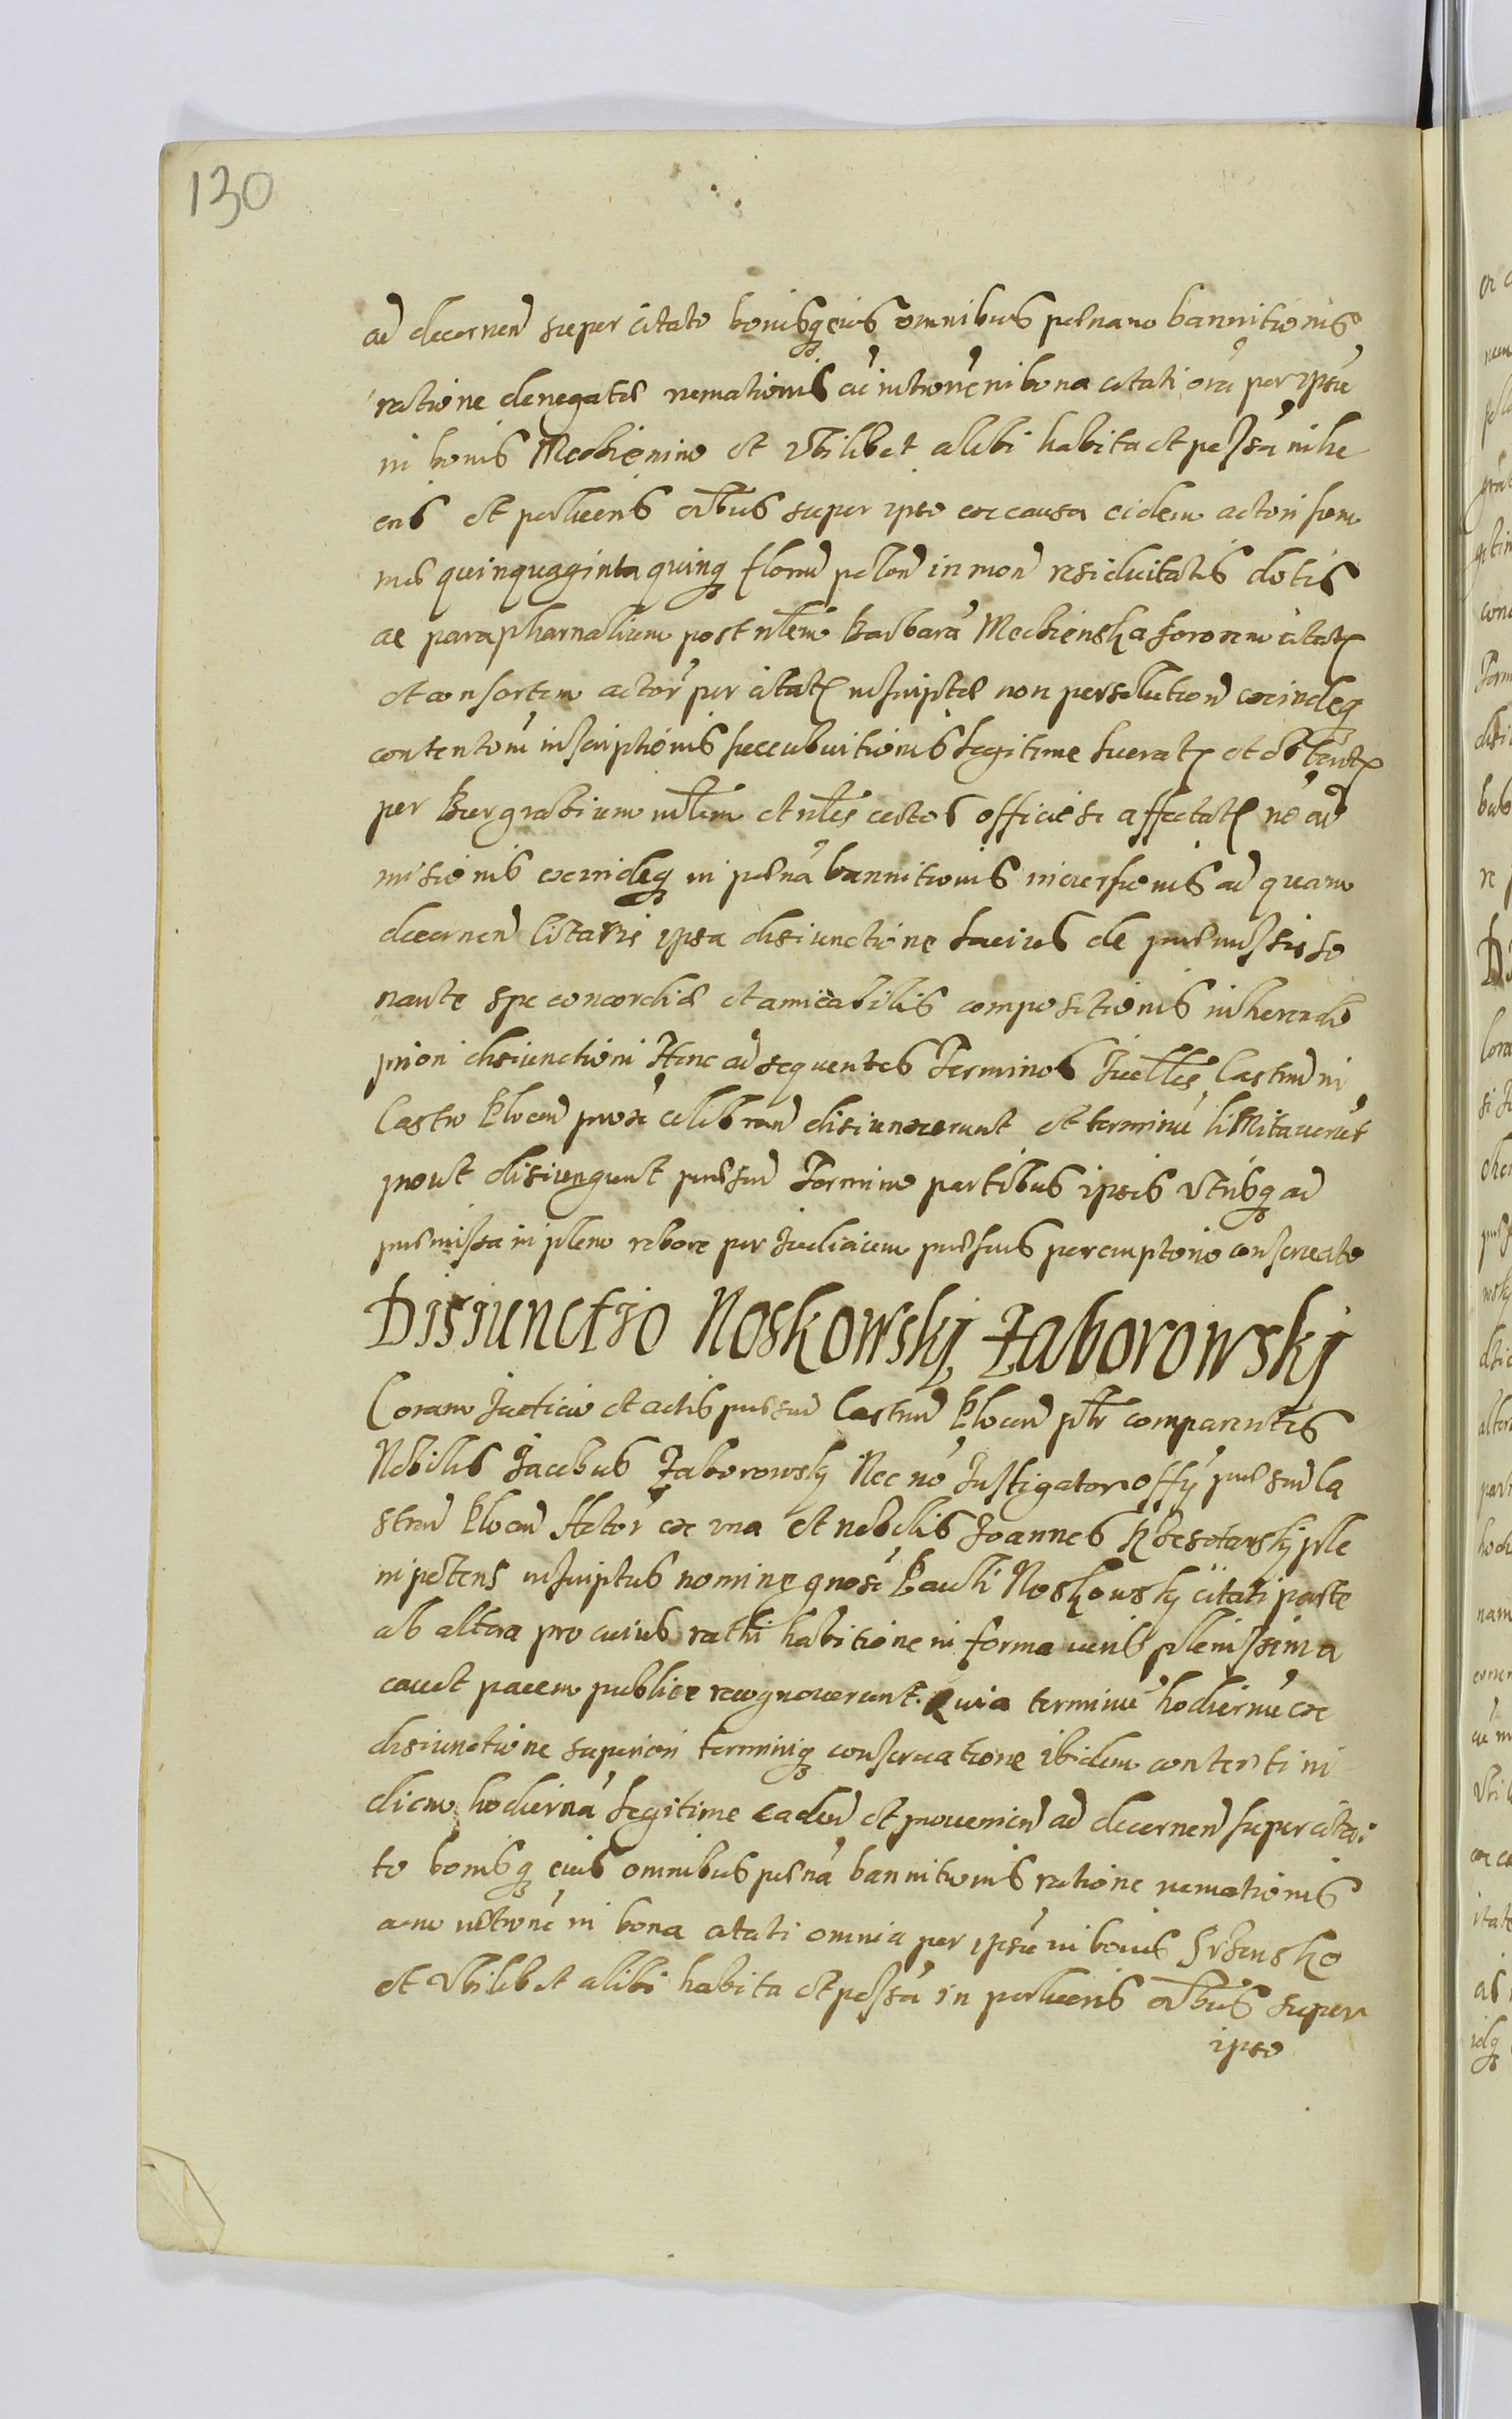 130
ad decernend super citato bonisq eius omnibus poenam bannitionis
ratione denegatae remationis ac intromis in bona citati oia per ipsu
in bonis Mochienino et vbilibet alibi habita et possa inhe
ens et perlucens orbus super ipso ex causa eidem actori sum
mae quinquaginta quinq florend polon in mon residuitatis dotis
ac paraphernalium post nlem Barbara Mochienska sororem citati
et consortem actor per citat inscriptae non persolution exindeq
contentoru inscriptionis succubuitionis legitime lucrat et obtent
per Burgrabium nlem et nles certos officiose affectat no ad
missionis exindeq in poena bannitionis incursionis ad quam
decernend citatus ipsa disiunctione latius de praemissis so
nante spe concordiae et amicabilis compositionis inherendo
priori disiunctioni Hinc ad sequentes Terminos Iudlles Castren in
Castro Plocen proxe celebrand disiunxerunt et terminu limitaverut
prout disiungunt praesend Termino partibus ipsis vtrisq ad
praemissa in pleno robore per Iudicium praesens peremptorio conseruato
Disiunctio Noskowskj Zaborowskj
Coram Iudicio et actis praesend Castren Plocen plr comparentes
Nobilis Jacobus Zaborowsky Nec no Instigator offy praesend Ca
stren Plocen Actor ex vna et nobilis Joannes ple
nipotens inscriptus nomine gnosi Pauli Noskowsky citati parte
ab altera pro cuius rathi habitione in forma iuris plenissima
cauet pacem publice recognouerunt. Quia terminu hodiernu ex
disiunctione superiori terminiq conseruatione ibidem contenti in
diem hodierna legitime caden et prouenien ad decernend super cita
to bonisq eius omnibus poena bannitionis ratione remotionis
a intromiss in bona citati omnia per ipsu in bonis Srbensko
et vbilibet alibi habita et possa in perlucens orbus super
ipso